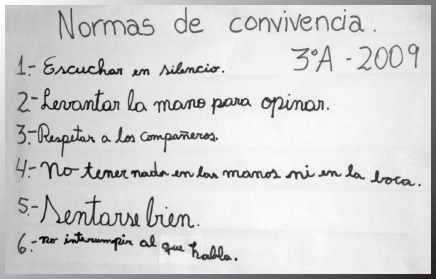 Normas de convivencia.
3ºA - 2009
1.- Escuchar en silencio.
2.- Levantar la mano para opinar.
3.- Respetar a los compañeros.
4.- No tener nada en las manos ni en la boca.
5.- Sentarse bien.
6.- no interrumpir al que habla.